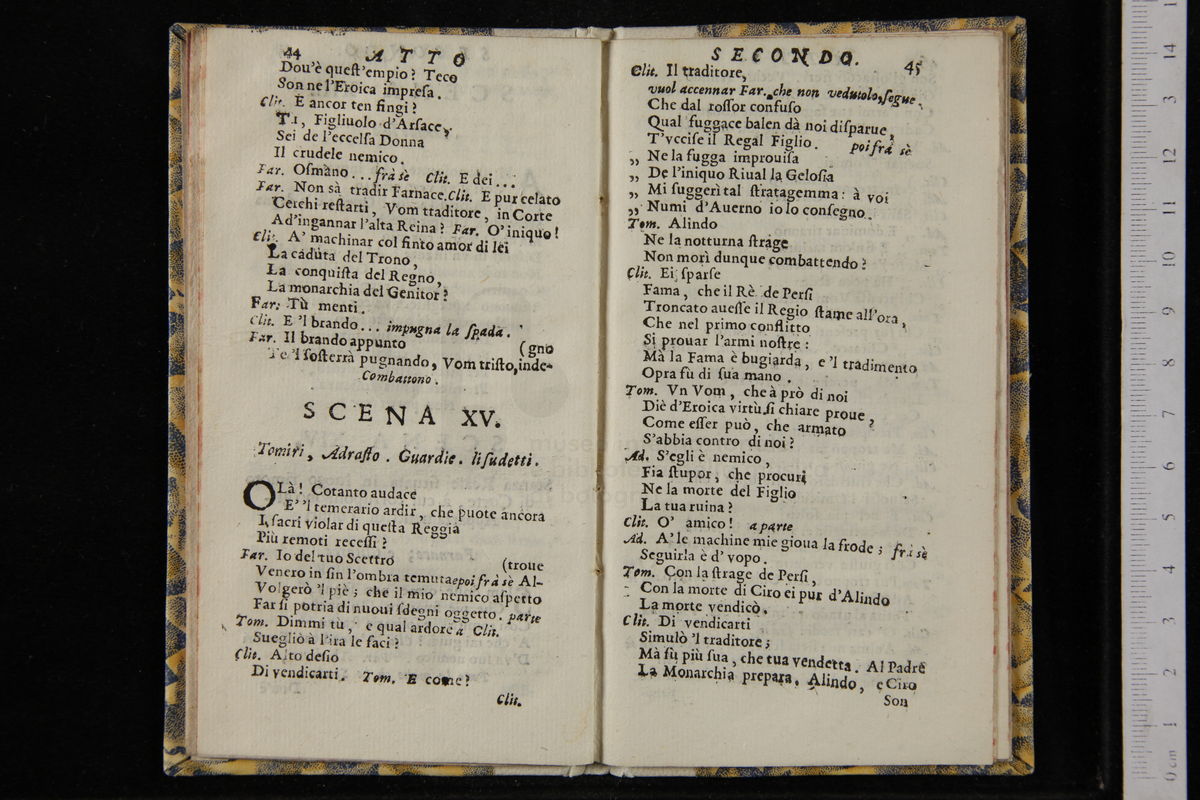 44 ATTO
Dou'è quest'empio? Teco
Son ne l'Eroica impresa.
Clit. E ancor ten fingi?
Tù, Figliuolo d'Arsace,
Sei de l'eccelsa Donna
Il crudele nemico.
Far. Osmano... frà sè Clit. E dei...
Far. Non sà tradir Farnace. Clit. E pur celato
Cerchi restarti, Vom traditore, in Corte
Ad'ingannar l'alta Reina? Far. O'iniquo!
Clit. A' machinar col finto amor di lei
La caduta del Trono,
La conquista del Regno,
La monarchia del Genitor?
Far. Tù menti.
Clit. E 'l brando... impugna la spada.
Far. Il brando appunto (gno
Te 'l sosterrà pugnando, Vom tristo, inde-
Combattono.
SCENA XV.
Tomiri, Adrasto. Guardie. li sudetti.
OLà! Cotanto audace
E' 'l temerario ardir, che puote ancora
I sacri violar di questa Reggia
Più remoti recessi?
Far. Io del tuo Scettro (troue
Venero in sin l'ombra temuta e poi frà sè Al-
Volgerò 'l piè; che il mio nemico aspetto
Far si potria di nuoui sdegni oggetto. parte
Tom. Dimmi tu, e qual ardore a Clit.
Suegliò à l'ira le faci?
Clit. Alto desio
Di vendicarti. Tom. E come?
Clit.
SECONDO. 45
Clit. Il traditore,
vuol accennar Far. che non vedutolo, segue.
Che dal rossor confuso
Qual fuggace balen dà noi disparue,
T'vccise il Regal Figlio. poi frà sè
„ Ne la fugga improuisa
„ De l'iniquo Riual la Gelosia
„ Mi suggerì tal stratagemma: à voi
„ Numi d'Auerno io lo consegno.
Tom. Alindo
Ne la notturna strage
Non morì dunque combattendo?
Clit. Ei sparse
Fama, che il Rè de Persi
Troncato auesse il Regio stame all'ora,
Che nel primo conflitto
Si prouar l'armi nostre:
Mà la Fama è bugiarda, e 'l tradimento
Opra fù di sua mano.
Tom. Vn Vom, che à prò di noi
Diè d'Eroica virtù si chiare proue,
Come esser può, che armato ?
S'abbia contro di noi?
Ad. S'egli è nemico,
Fia stupor, che procuri
Ne la morte del Figlio
La tua ruina?
Clit. O' amico! a parte
Ad. A' le machine mie gioua la frode; frà sè
Seguirla è d'vopo.
Tom. Con la strage de Persi,
Con la morte di Ciro ei pur d'Alindo
La morte vendicò.
Clit. Di vendicarti
Simulò 'l traditore;
Mà fù più sua, che tua vendetta. Al Padre
La Monarchia prepara. Alindo, e Ciro
Son